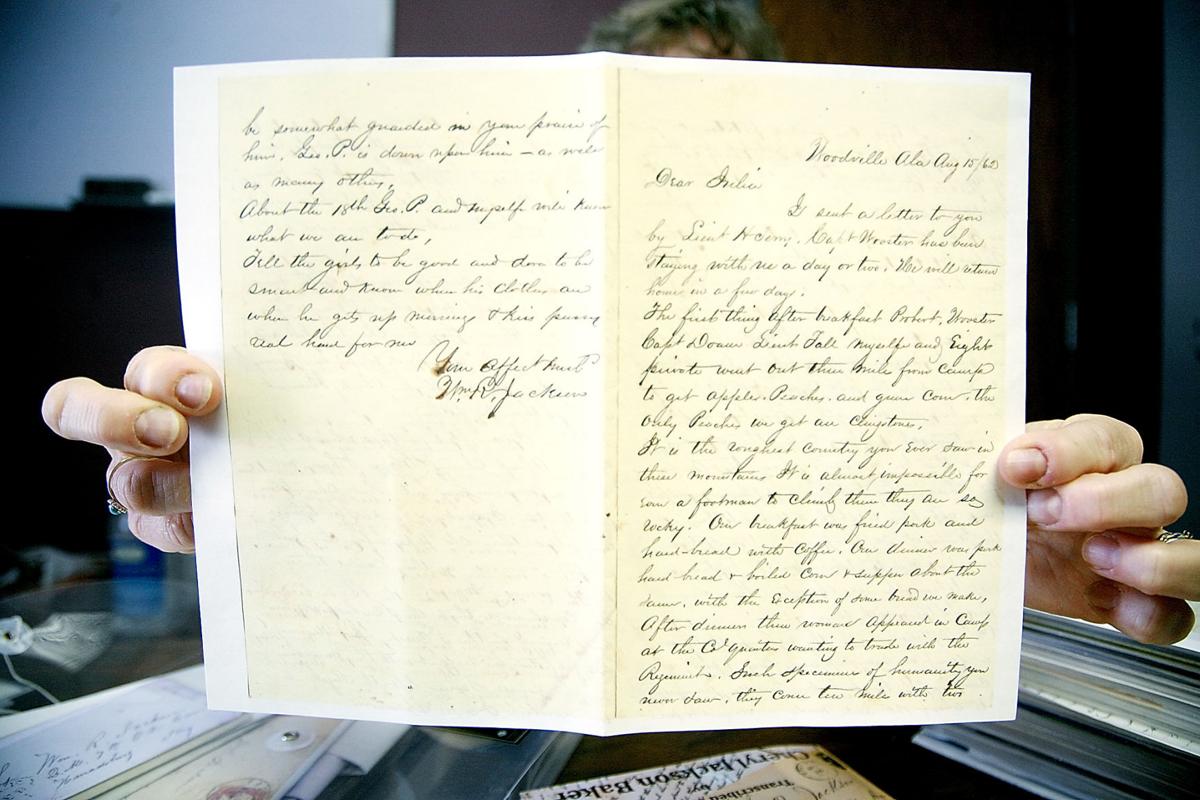 be somewhat guarded in your praise of
him. Geo. P. is down upon him — as well
as many others,
About the 18th Geo. P. and myself will know
what we are to do,
Tell the girls to be good and dora to be
smart and know when his clothes are
when he gets up mornings & kiss pussy
real hard for me
Your Affect Husb
Wm. R. Jackson
Woodville Ala Aug 15/62
Dear Julia
I sent a letter to you
by Lieut Henry. Capt Wooster has been
staying with us a day or two. He will return
home in a few days.
The first thing after breakfast Probert, Wooster
Capt Doane Lieut Tall myself and Eight
private went out three mile from camp
to get apples. Peaches. and green corn. the
only Peaches we get are clingstones,
It is the roughest country you ever saw in
these mountains It is almost impossible for
even a footman to climb them they are so
rocky. Our breakfast was fried pork and
hard-bread with coffee. Our dinner was pork
hard bread & boiled corn & supper about the
same, with the exception of some bread we make,
After dinner three womans appeared in Camp
at the Cl quarters wanting to trade with the
Regiment. Such specimens of humanity you
never saw, they come ten mile with two
Wm. R. Jackson
Cheryl Jackson Baker
by
Transcribed